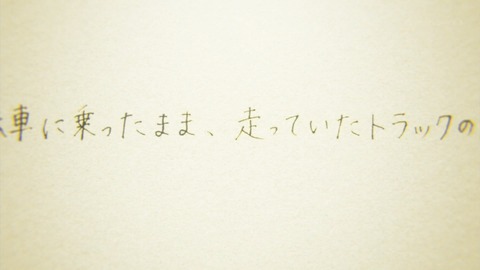 車に乗ったまま、走っていたトラックの